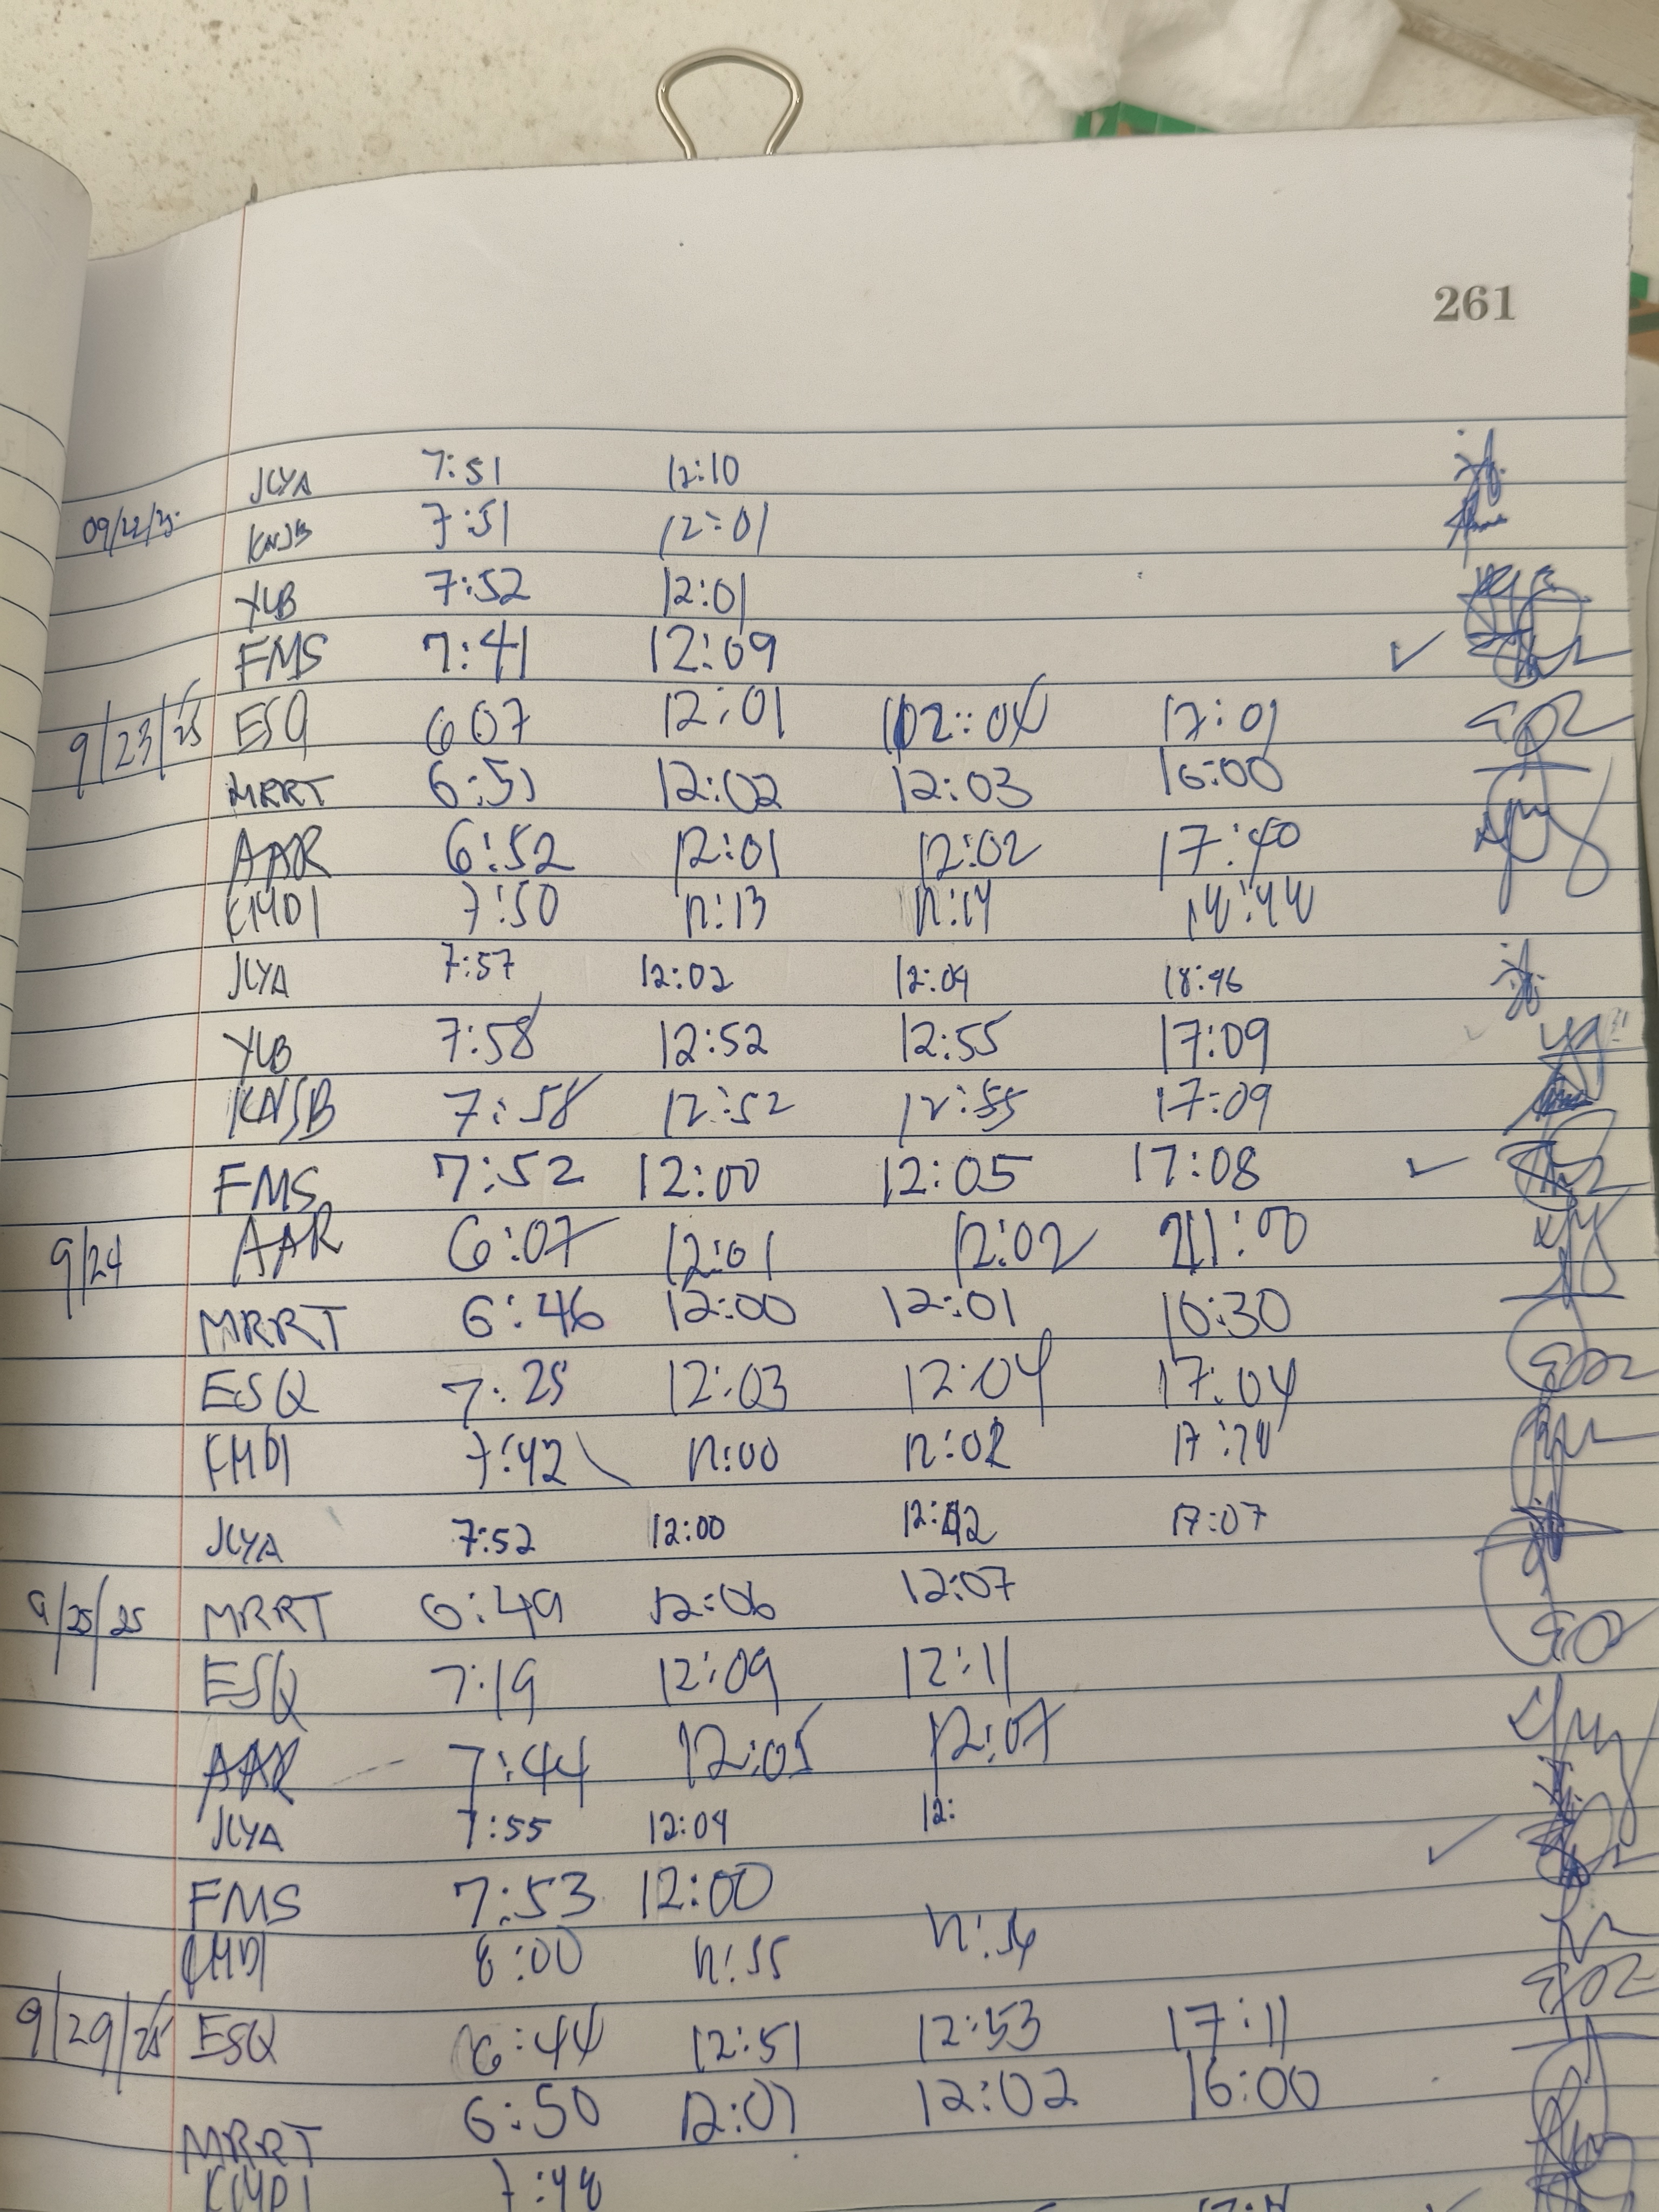 261
JCYA 7:51 12:10
09/22/25 KNSB 7:51 12:01
YLB 7:52 12:01
FMS 7:41 12:09 ✓
9/23/25 ESQ 607 12:01 12:04 17:01
MRRT 6:51 12:02 12:03 16:00
AAR 6:52 12:01 12:02 17:40
KMDI 7:50 12:13 12:14 18:44
JCYA 7:57 12:02 12:04 18:46
YLB 7:58 12:52 12:55 17:09
KNSB 7:58 12:52 12:55 17:09
FMS 7:52 12:00 12:05 17:08 ✓
9/24 AAR 6:07 12:01 12:02 21:00
MRRT 6:46 12:00 12:01 16:30
ESQ 7:25 12:03 12:04 17:04
KMDI 7:42 12:00 12:02
JCYA 7:52 12:00 12:02 17:07
9/25/25 MRRT 6:49 12:06 12:07
ESQ 7:19 12:09 12:11
AAR 7:44 12:05 12:07
JCYA 7:55 12:04 12:
FMS 7:53 12:00 ✓
KMDI 8:00 12:55 12:56
9/29/25 ESQ 6:44 12:51 12:53 17:11
MRRT 6:50 12:01 12:02 16:00
KMDI 7:48